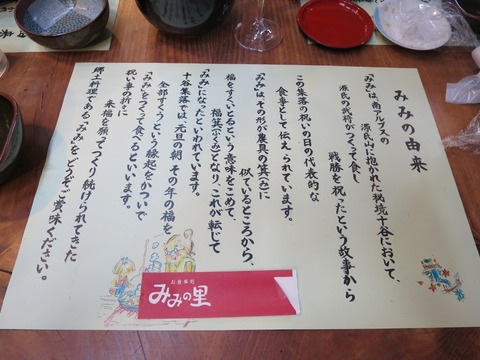 みみの由来
「みみ」は南アルプスの
源氏山に抱かれた秘境十谷において、
源氏の武将がつくって食し
戦勝を祝ったという故事から
この集落の祝いの日の代表的な
食事として伝えられています。
「みみ」は、その形が農具の箕(み)に
似ているところから、
福をすくいとるという意味をこめて、
福箕(ふくみ)となり、これが転じて
「みみ」になったといわれています。
十谷集落では、元旦の朝 その年の福を
全部すくうという縁起をかついで
「みみ」をつくって食べるといいます。
祝い事の折に
来福を願ってつくり続けられてきた
郷土料理である「みみ」をどうぞご賞味ください。
お食事処
みみの里